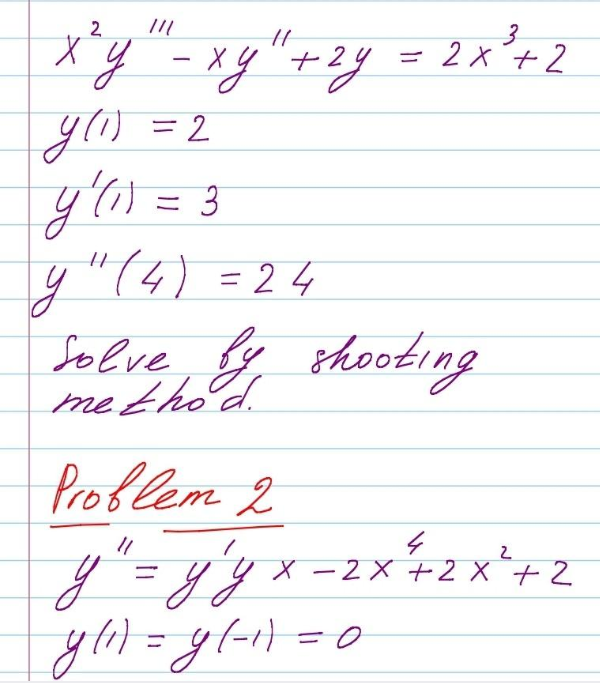 x²y''' - xy'' + 2y = 2x³ + 2
y(1) = 2
y'(1) = 3
y''(4) = 24
Solve by shooting
method.
Problem 2
y'' = y'yx - 2x⁴ + 2x² + 2
y(1) = y(-1) = 0